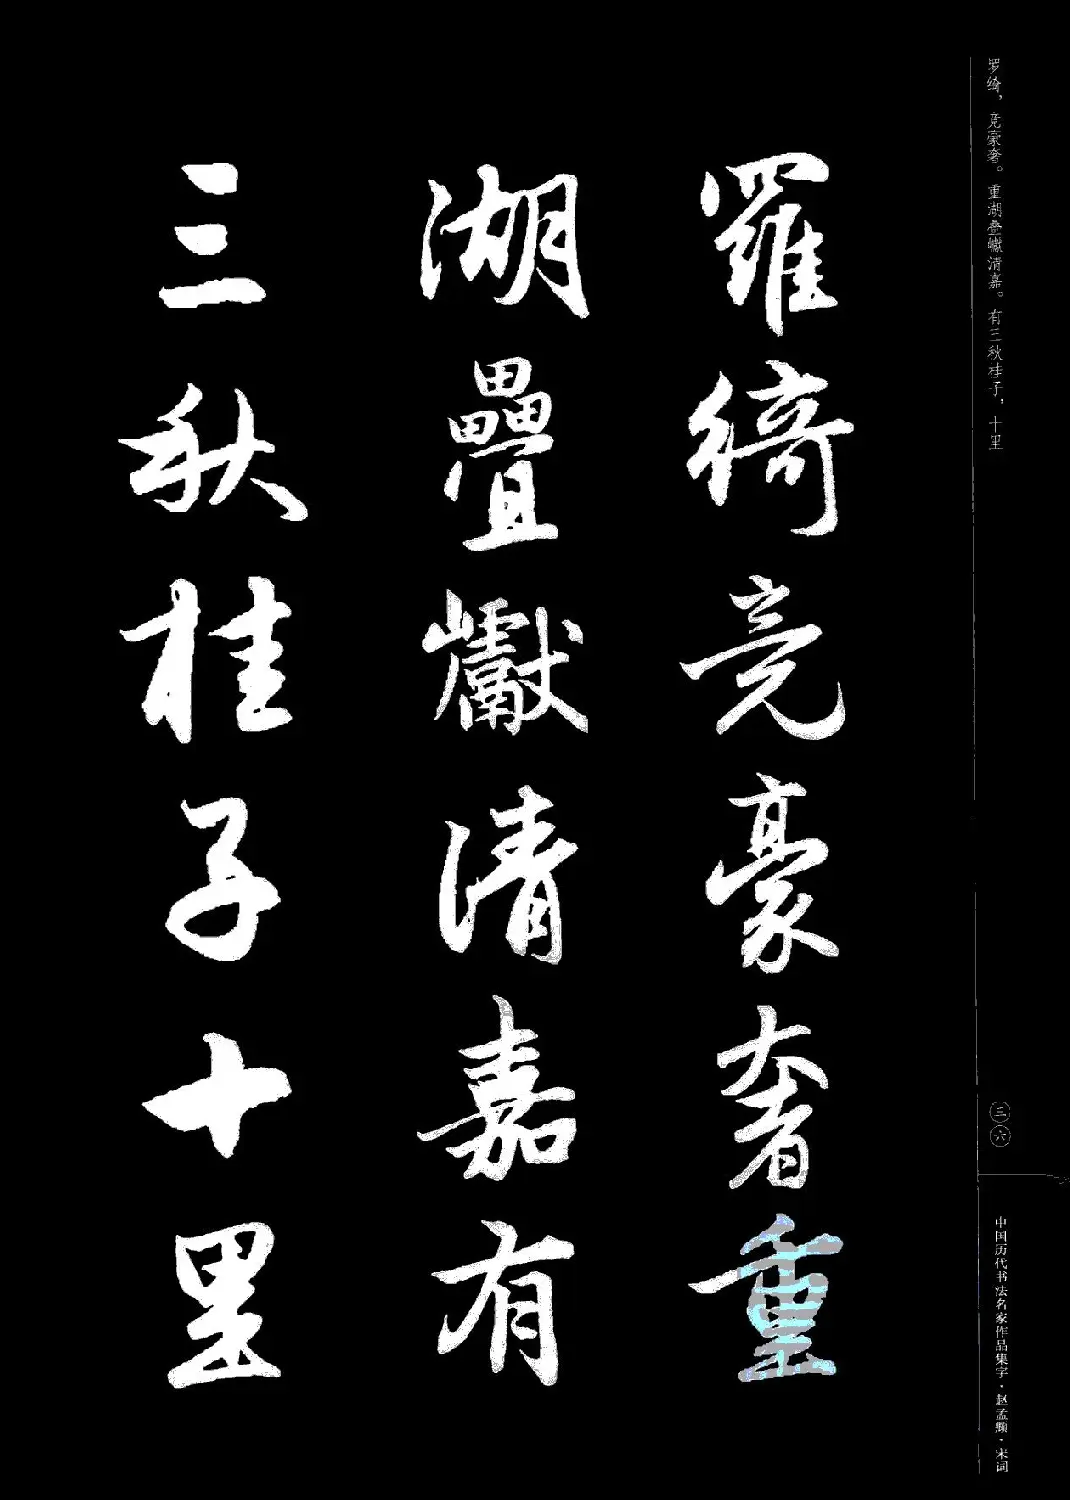 罗绮，竞豪奢。重湖叠巘清嘉。有三秋桂子，十里
羅綺竞豪奢重
湖疊巘清嘉有
三秋桂子十里
三六
中国历代书法名家作品集字·赵孟頫·宋词